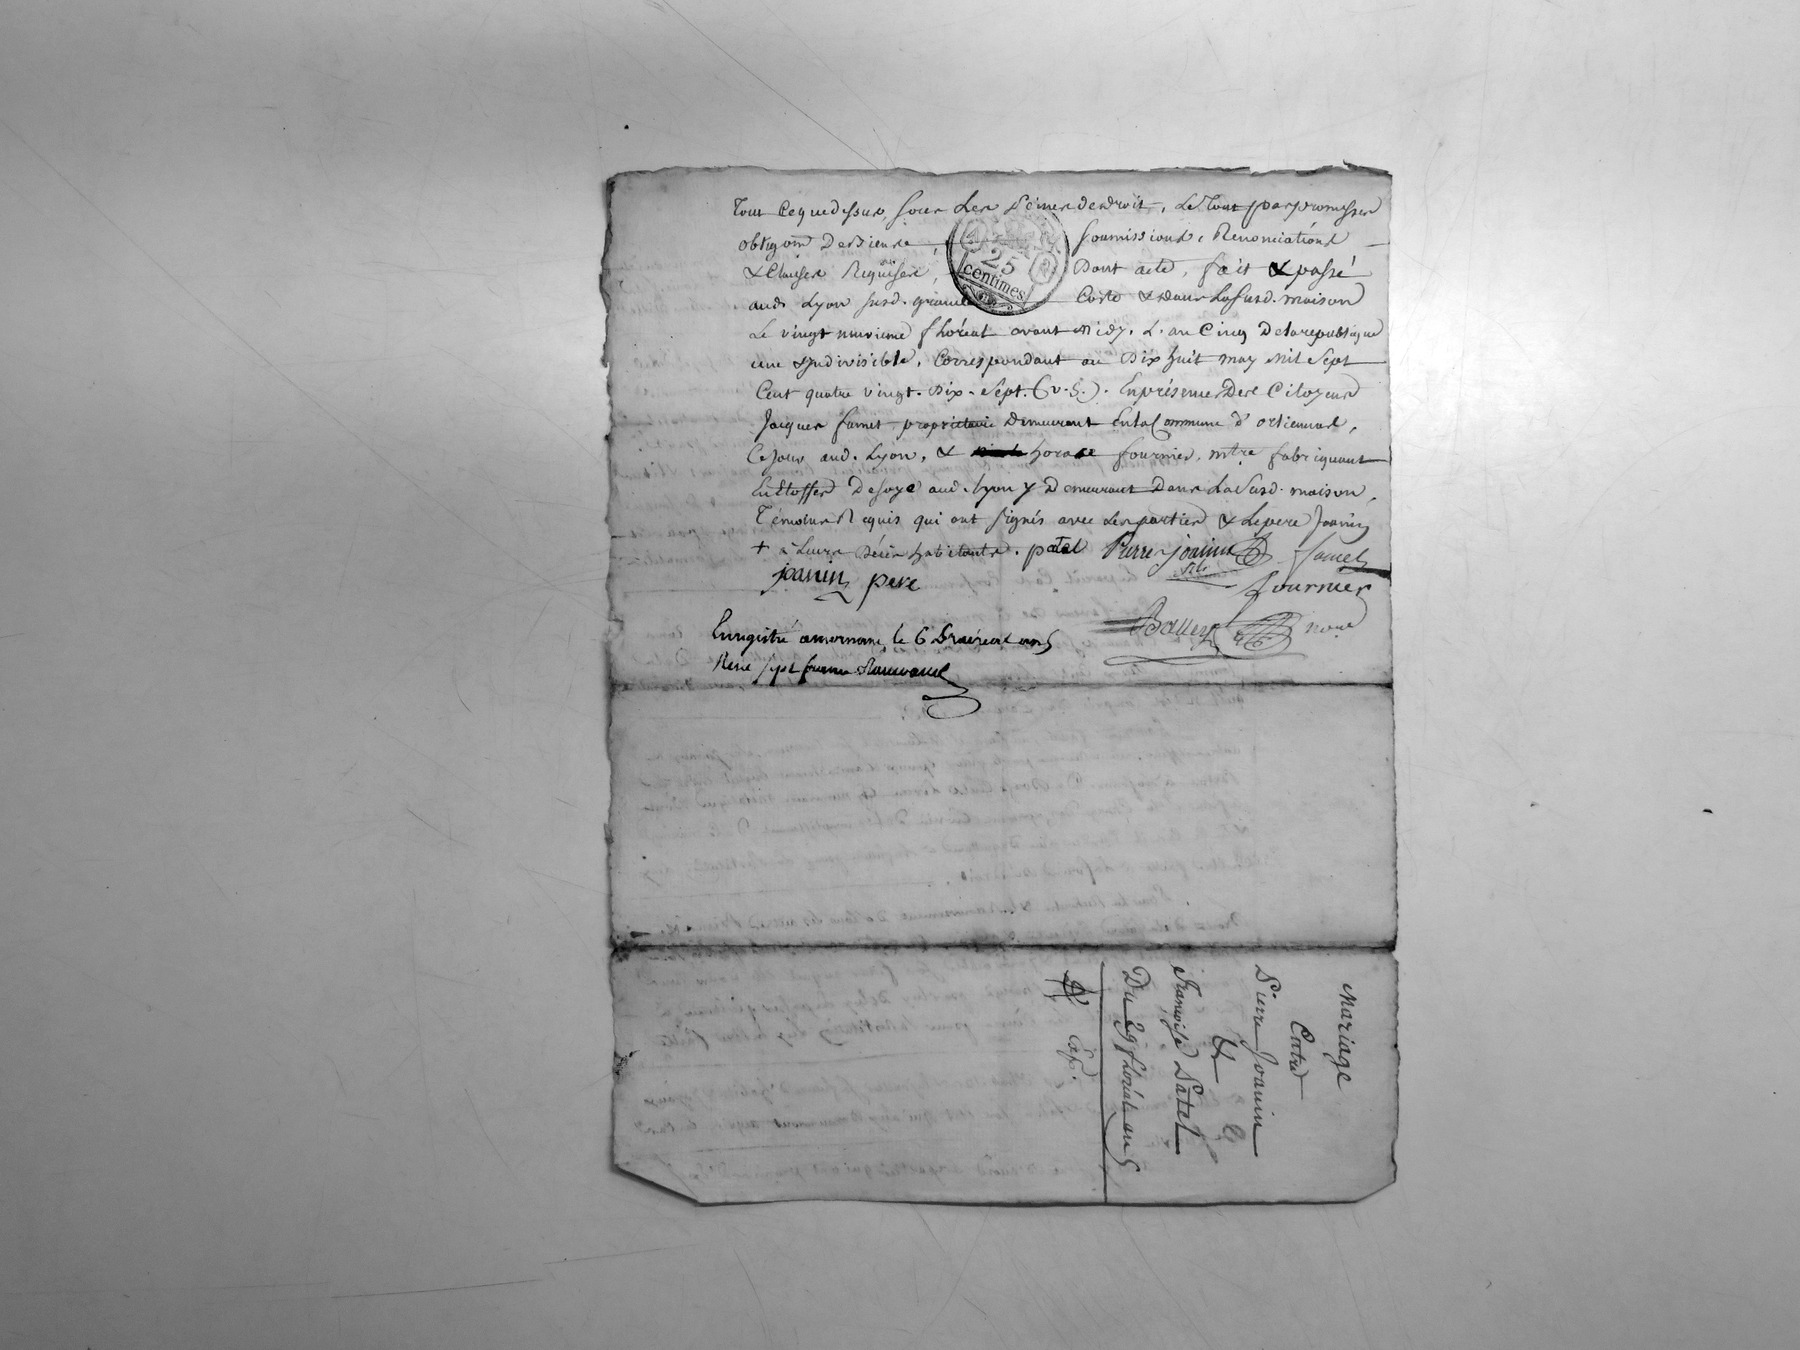 Tout ce que dessus, sous les peines de droit, le Tout par promesses
obligaon de Biens, soumissions, Renonciations
& Clauses Requises, Dont acte, fait & passé
aud. Lyon susd. grande Coste & dans la susd. maison
Le vingt neuvieme fhloréal avant midy. L'an Cinq de la republique
une & Indivisible, Correspondant au Dix huit may mil Sept
Cent quatre vingt. Dix. Sept. (v. S.). En présence des Citoyens
Jacques proprietaire demeurant En la Commune d'
Ce jour aud. Lyon, & horace fournier, mtre fabriquant
En Etoffes de soye aud. Lyon y Demeurant Dans La Susd. maison,
Témoins Requis qui ont signés avec les parties & le pere Joanin
patel Pierre joanin fils
joanin pere fournier
nore
Enregistré le 6 Prairial an 5
Reçu sept francs
25
centimes
Mariage
Entre
Pierre Joanin
&
Françoise Patel
Du 29 floréal an 5